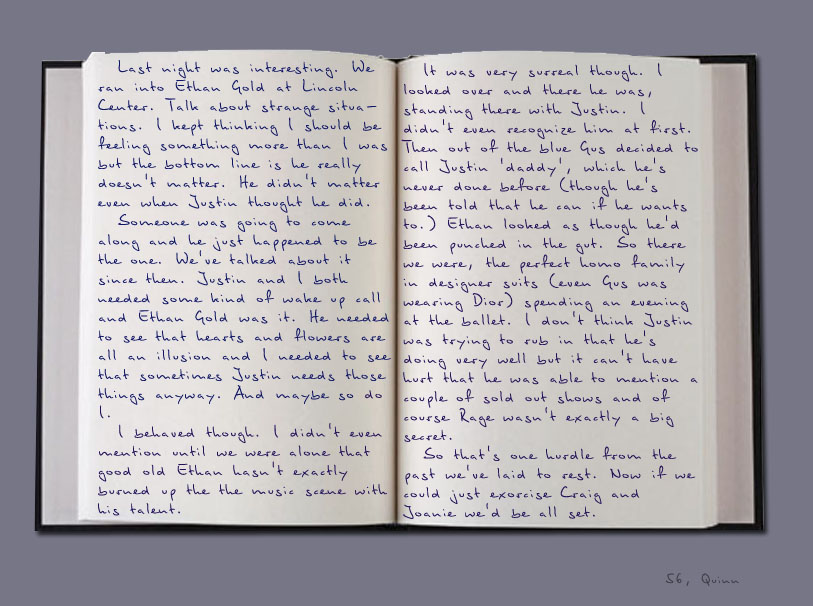 Last night was interesting. We
ran into Ethan Gold at Lincoln
Center. Talk about strange situa-
tions. I kept thinking I should be
feeling something more than I was
but the bottom line is he really
doesn't matter. He didn't matter
even when Justin thought he did.
Someone was going to come
along and he just happened to be
the one. We've talked about it
since then. Justin and I both
needed some kind of wake up call
and Ethan Gold was it. He needed
to see that hearts and flowers are
all an illusion and I needed to see
that sometimes Justin needs those
things anyway. And maybe so do
I.
I behaved though. I didn't even
mention until we were alone that
good old Ethan hasn't exactly
burned up the the music scene with
his talent.
It was very surreal though. I
looked over and there he was,
standing there with Justin. I
didn't even recognize him at first.
Then out of the blue Gus decided to
call Justin 'daddy', which he's
never done before (though he's
been told that he can if he wants
to.) Ethan looked as though he'd
been punched in the gut. So there
we were, the perfect homo family
in designer suits (even Gus was
wearing Dior) spending an evening
at the ballet. I don't think Justin
was trying to rub in that he's
doing very well but it can't have
hurt that he was able to mention a
couple of sold out shows and of
course Rage wasn't exactly a big
secret.
So that's one hurdle from the
past we've laid to rest. Now if we
could just exorcise Craig and
Joanie we'd be all set.
56, Quinn